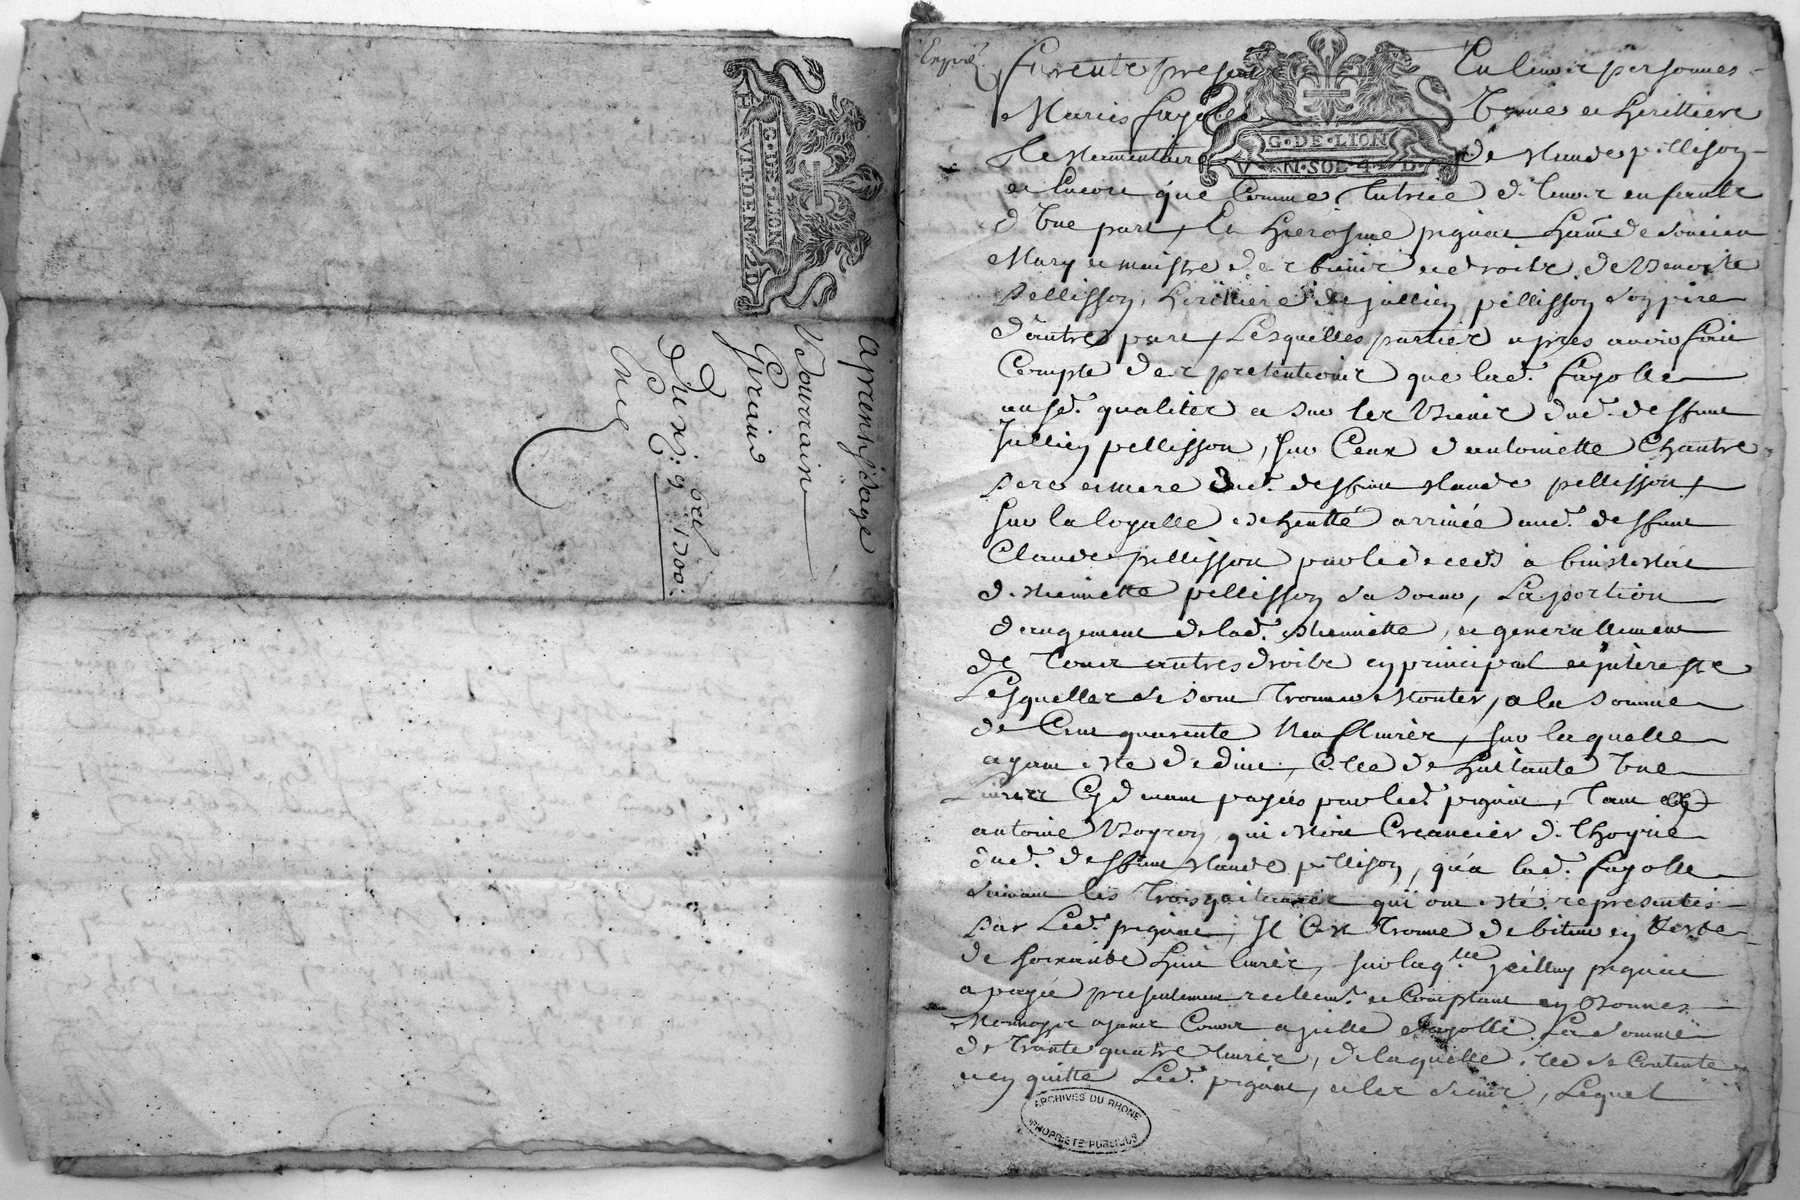 G·DE·LION
HVIT·DEN·2D
aprentissage
Vourraire
Giraud
Du xi: 9bre 1700:
Expié
Furent presens En leurs personnes
Maries fayolle vefve et heritiere
Testementaire de Claude pellison
G·DE·LION
V N·SOL·4·D
et encore que comme Tutrice de leurs enfents
d'Vne part, Et Hierosme pignat de Soucieu
Mary et maistre des biens et droits de Benoiste
Pellisson, heritiere de jullien pellisson son pere
d'autre part, Lesquelles parties apres avoir fait
Compte des pretentions que lad. fayolle
ausd. qualites a sur les Biens dud. deffunt
Jullien pellisson, sur Ceux d'antoinette Chantre
Pere et mere dud. deffunt Claude pellisson,
Sur la loyalle escheutte arrivée aud. deffunt
Claude pellisson par le deceds abinstestat
d'estiennette pellisson sa soeur, La portion
d'augement de lad. estiennette, et generallement
de tous autres droits en principal et interests
Lesquelles se sont trouves Monter, a la somme
de Cent quarente Neuf livres, sur laquelle
ayant esté deduit, Celle de huictante Vne
Livres Cy devant payés par led. pignat, Tant a
antoine Boyron, qui estoit Creancier de l'hoyrie
dud. deffunt Claude pellison, qu'a lad. fayolle
suivant les Trois quittances qui ont esté representés
Par Led. pignat, Il C'est Trouvé debiteur en reste
de soixante huit livres, sur laqlle icelluy pignat
a payé presentement reellemt. et Comptant en Bonnes
Monnoyes ayant Cours a jcelle fayolle La somme
de Trante quatre livres, de laquelle elle se Contente
et en quitte Led. pignat, et les siens, Lequel
ARCHIVES DU RHONE
PROPRIETE PUBLIQUE